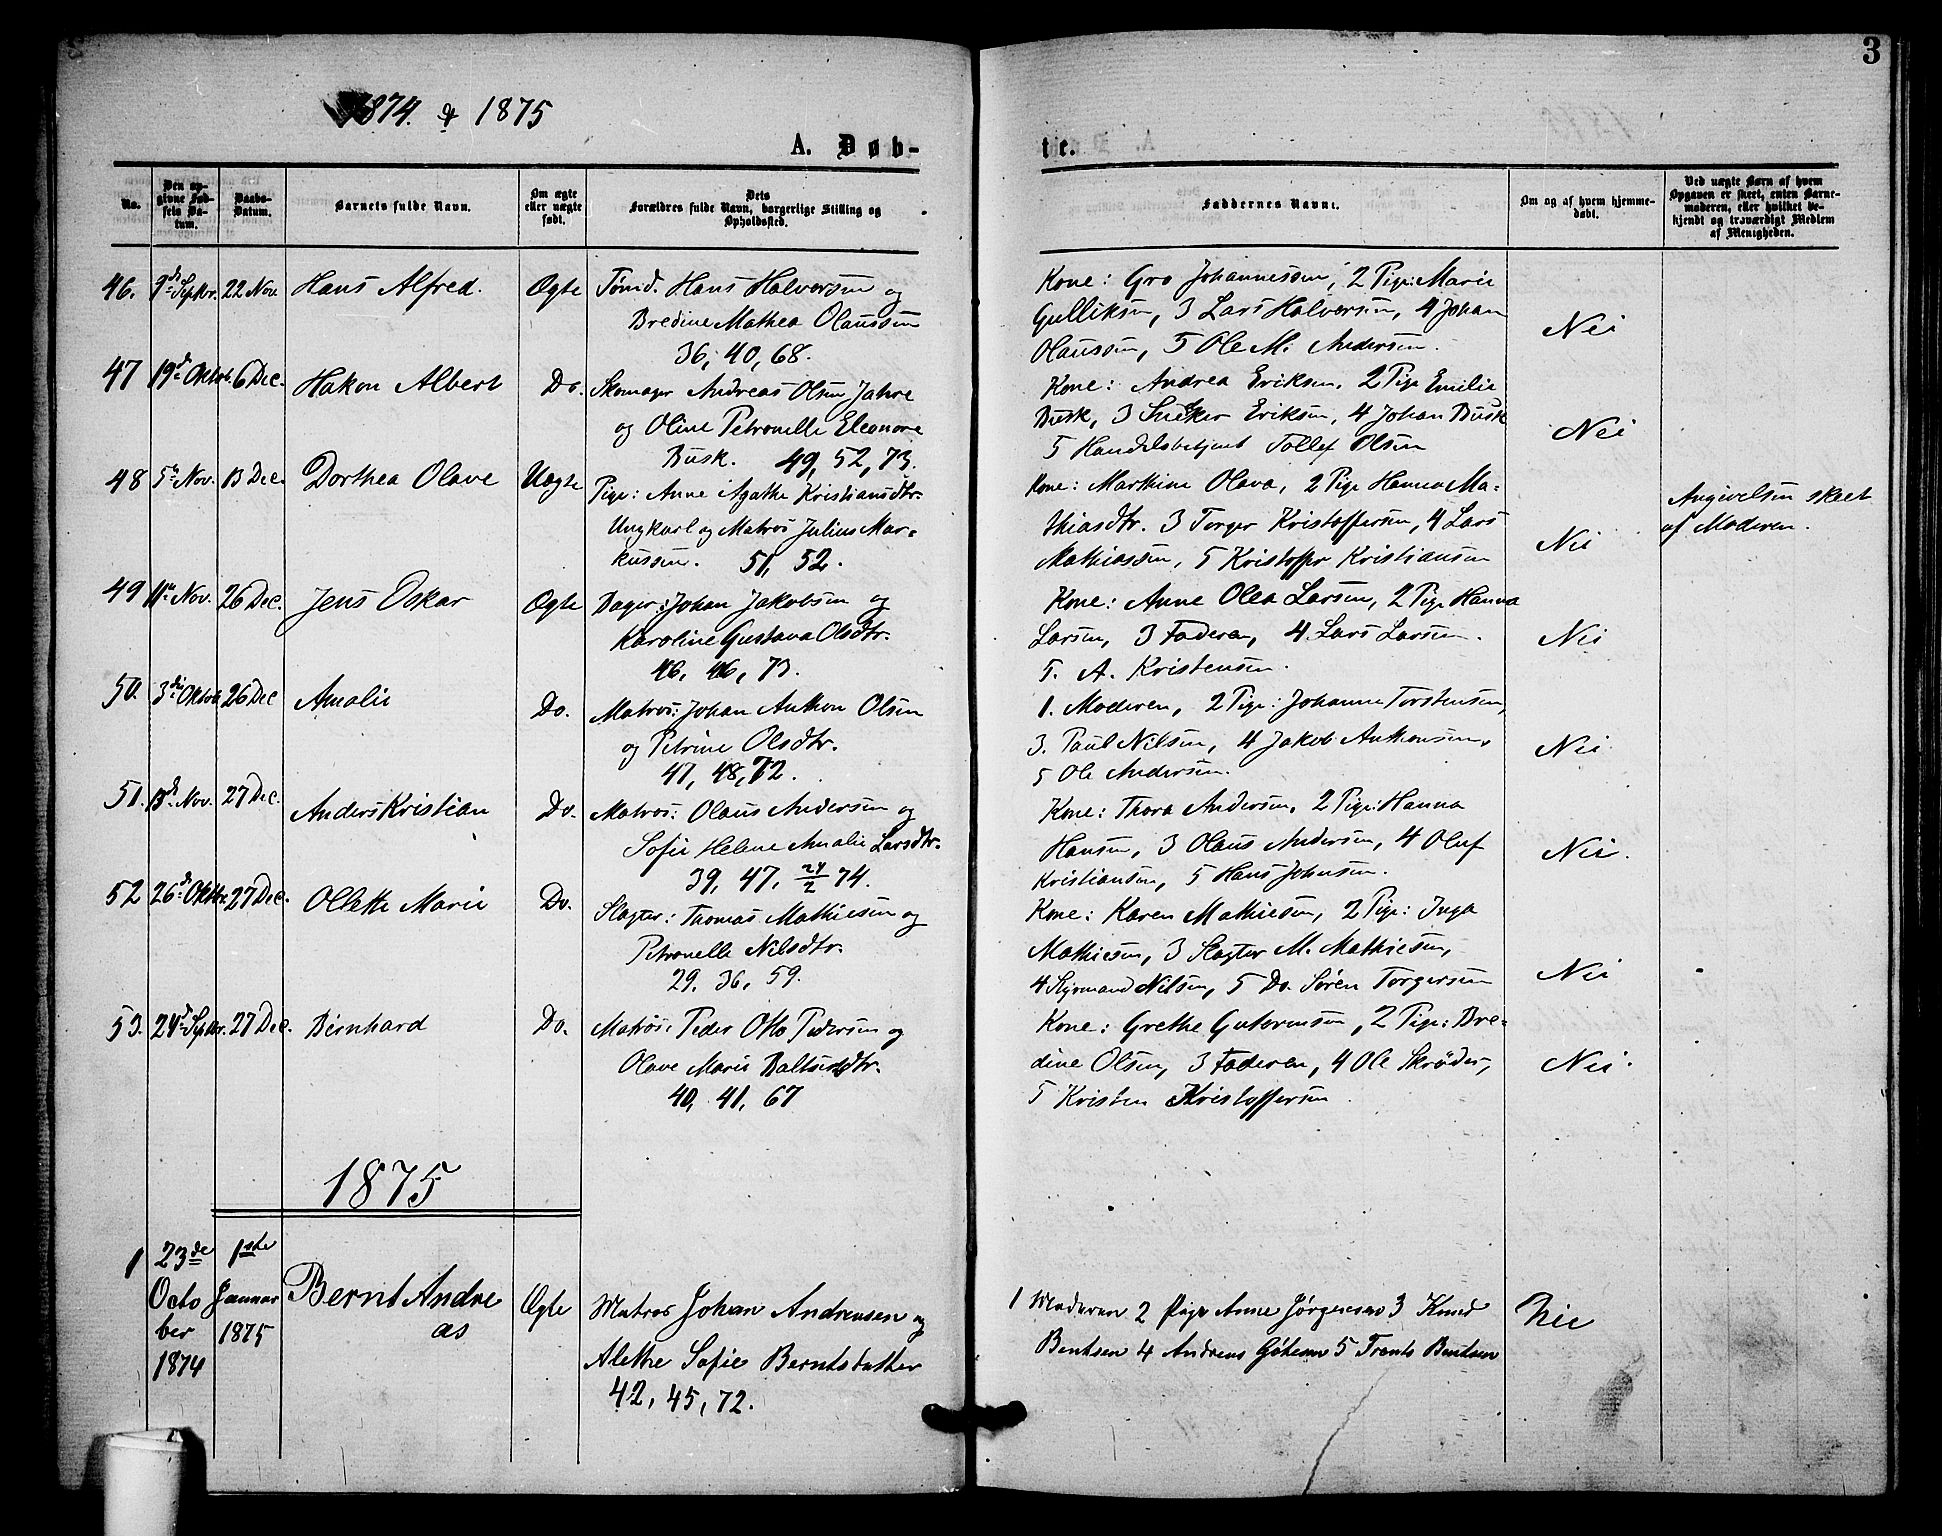 3
1874. & 1875
A. Døb-
te.
No.
Den op-
givne Fød-
sels Da-
tum.
Daabs-
Datum.
Barnets fulde Navn.
Om ægte
eller uægte
født.
Dets
Forældres fulde Navn, borgerlige Stilling og
Opholdssted.
Faddernes Navne.
Om og af hvem hjemme-
døbt.
Ved uægte Børn af hvem
Opgaven er skeet, enten Barne-
moderen, eller hvilket be-
kjendt og troværdigt Medlem
af Menigheden.
46. 9de Septbr. 22 Nov. Hans Alfred. Ægte Tømd. Hans Halversen og
Bredine Mathea Olaussen
36, 40, 68.
Kone: Gro Johannessen, 2 Pige: Marie
Gulliksen, 3 Lars Halversen, 4 Johan
Olaussen, 5 Ole M. Andersen.
Nei
47 19de Oktob. 6 Dec. Hakon Albert Do. Skomager Andreas Olsen Jahre
og Oline Petronelle Eleonore
Busk. 49, 52, 73.
Kone: Andrea Eriksen, 2 Pige Emilie
Busk, 3 Snedker Eriksen, 4 Johan Busk
5 Handelsbetjent Tollef Olsen
Nei
48 5te Nov. 13 Dec. Dorthea Olave Uægte Pige: Anne Agathe Kristiansdtr.
Ungkarl og Matros Julius Mar-
kussen. 51, 52.
Kone: Marthine Olava, 2 Pige Hanna Ma-
thiasdtr. 3 Torger Kristoffersen, 4 Lars
Mathiassen, 5 Kristoffer Kristiansen
Nei
Angivelsen skeet
af Moderen.
49 11te Nov. 26 Dec. Jens Oskar Ægte Bager: Johan Jakobsen og
Karoline Gustava Olsdtr.
46, 46, 73.
Kone: Anne Olea Larsen, 2 Pige Hanna
Larsen, 3 Faderen, 4 Lars Larsen.
5. A. Kristensen.
Nei
50. 3die Oktob. 26 Dec Amalie Do. Matros: Johan Anthon Olsen
og Petrine Olsdtr.
47, 48, 72.
1. Moderen, 2 Pige: Johanne Torstensen,
3. Paul Nilsen, 4 Jakob Anthonsen,
5 Ole Andersen.
Nei
51. 13de Nov. 27 Dec. Anders Kristian Do. Matros: Olaus Andersen og
Sofie Helene Amalie Larsdtr.
39, 47, 24/2 74.
Kone: Thora Andersen, 2 Pige: Hanna
Hansen, 3 Olaus Andersen, 4 Oluf
Kristiansen, 5 Hans Johnsen.
Nei.
52 26de Oktbr. 27 Dec. Ollette Marie Do. Slagter: Thomas Mathiesen og
Petronelle Nilsdtr.
29, 36, 59.
Kone: Karen Mathiesen, 2 Pige: Inga
Mathiesen, 3 Slagter M. Mathiesen,
4 Styrmand Nilsen, 5 Do. Søren Torgersen
Nei
53. 24de Septbr. 27 Dec. Bernhard Do. Matros: Peder Otto Pedersen og
Olave Marie Baltsersdtr.
40, 41, 67
Kone: Grethe Gutormsen, 2 Pige: Bre-
dine Olsen, 3 Faderen, 4 Ole Skrøder,
5 Kristen Kristoffersen.
Nei.
1875
1 23de
Octo
ber
1874
1ste
Januar
1875
Bernt Andre
as
Ægte
Matros Johan Andreasen og
Alethe Sofie Berntsdatter
42, 45, 72.
1 Moderen 2 Pige Anne Jørgensen 3 Knud
Bentsen 4 Andreas 5 Bentsen
Nei